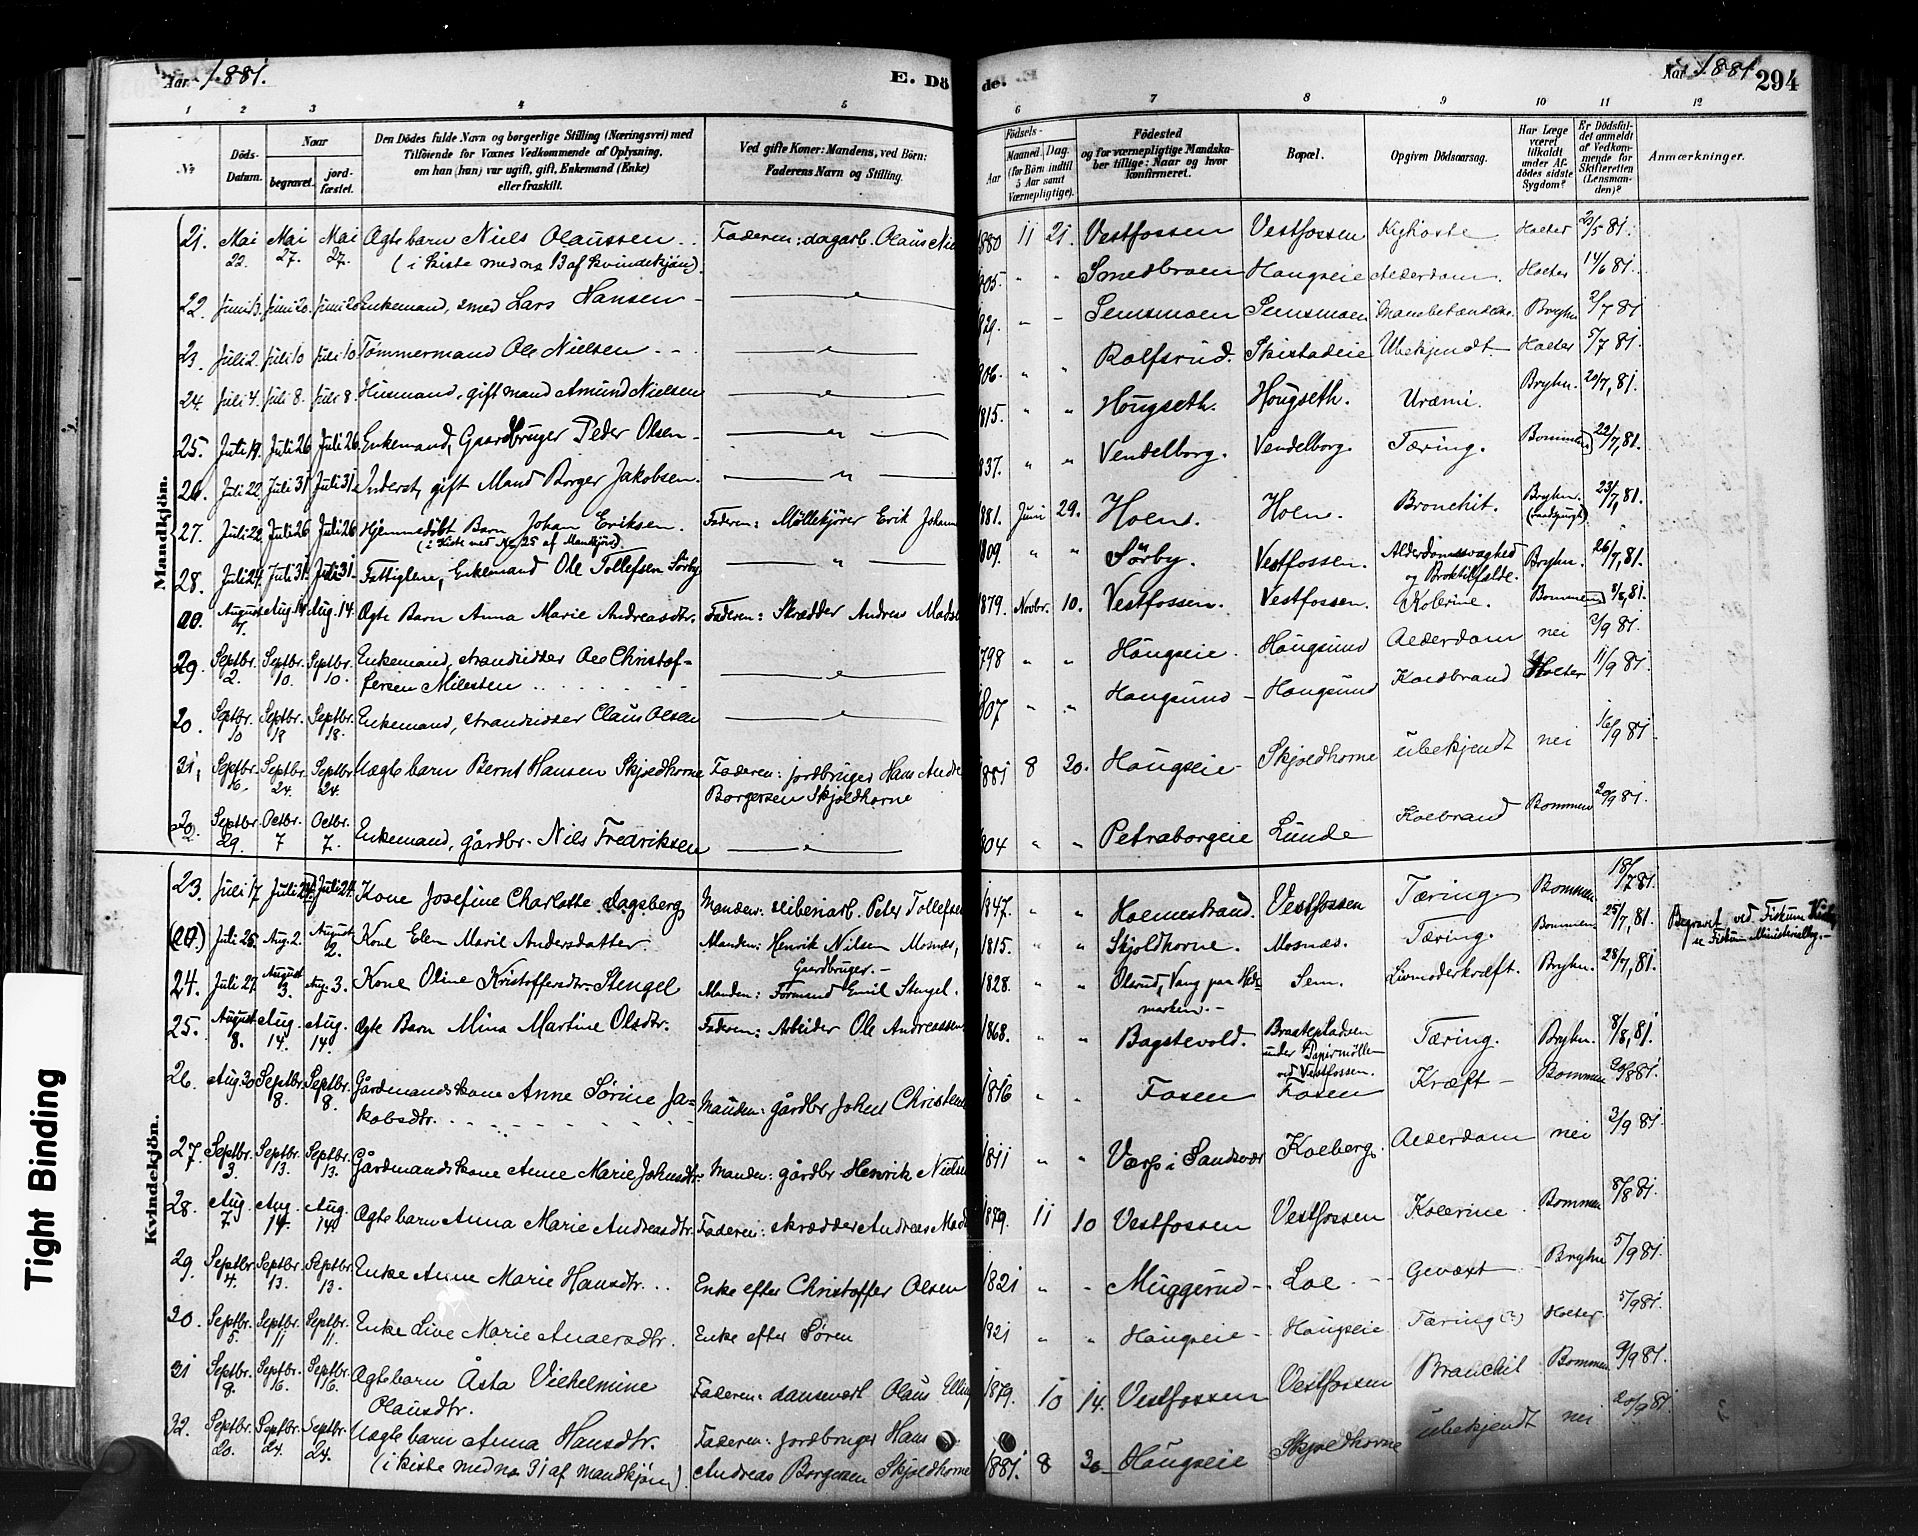 Aar 1881. E. Dö de. Aar 1881 294
1 2 3 4 5 6 7 8 9 10 11 12
No. Döds-Datum. Naar begravet. jord-fæstet. Den Dödes fulde Navn og borgerlige Stilling (Næringsvei) med Tilföiende for Voxnes Vedkommende af Oplysning, om han (hun) var ugift, gift, Enkemand (Enke) eller fraskilt. Ved gifte Koner: Mandens, ved Börn: Faderens Navn og Stilling. Födsels- Aar Maaned Dag (for Börn indtil 5 Aar samt Værnepligtige). Födested og for værnepligtige Mandskaber tillige: Naar og hvor Konfirmeret. Bopæl. Opgiven Dödsaarsag. Har Læge været tilkaldt under Afdödes sidste Sygdom? Er Dödsfaldet anmeldt af Vedkommende for Skifteretten (Lensmanden)? Anmærkninger.
Mandkjön.
21. Mai 22. Mai 27. Mai 27. Ægte barn Niels Olaussen . . Faderen: dagarb. Olaus Nie 1880 11 21. Vestfossen Vestfossen Kighoste Holter 2/5 81.
(i kiste med no 13 af kvindekjön).
22. Juni 13. Juni 20. Juni 20 Enkemand, smed Lars Hansen 805. " " Smedbraen Hougseie Alderdom. Holter 14/6 81.
23. Juli 2. Juli 10 Juli 10 Tömmermand Ole Nielsen . - . 829. Semsmoen Semsmoen Bryhn 2/7 81
24. Juli 4. Juli 8. Juli 8. Husmand, gift mand Amund Nielsen 806. " " Rolfsrud. Skistadeie Ubekjendt. Holter 5/7 81.
25. Juli 19. Juli 26 Juli 26. Enkemand, Gaardbruger Peder Olsen 1815. " " Hougseth. Hougseth. Urämi. Bryhn. 20/7, 81.
26. Juli 22. Juli 31 Juli 31. Inderst, gift Mand Borger Jakobsen. 837. " " Vendelborg. Vendelborg. Tæring. Bommen 22/7, 81.
27. Juli 22. Juli 26 Juli 26 Hjemmedöbt Barn Johan Eriksen. Faderen: Möllekjörer Erik Johann 1881. Juni 29. Holm. Holm. Bronchit. Bryhn. 23/7, 81.
(i Kiste med No 25 af Mandkjön)
28. Juli 24. Juli 31. Juli 31. Fattiglem, Enkemand Ole Tollefsen Sörby 1809. " " Sörby. Vestfossen. Alderdomssvaghed og Broktilfælde. Bryhn. 26/7, 81.
00. August 7. Aug 14 Aug. 14. Ægte Barn Anna Marie Andreasdtr. Faderen: Skrædder Andreas Mads 1879. Novbr. 10. Vestfossen. Vestfossen. Kolerine. Bommen 8/8, 81.
29. Septbr. 2. Septbr. 10. Septbr. 10. Enkemand, strandsidder Ole Christof-
fersen Milesten . . 1798 " " Hougseie. Hougsund Alderdom nei 2/9 81.
30. Septbr. 10 Septbr. 18 Septbr. 18. Enkemand, strandsidder Claus Olsen 1807 " " Hougsund - Hougsund Koldbrand Holter 11/9 81.
31, Septbr. 16. Septbr. 24. Septbr. 24. Uægte barn Bernt Hansen Skjoldhorne Faderen: jordbruger Hans Andre 1881 8 20. Hougseie Skjoldhorne ubekjendt nei 16/9 81
Borgersen Skjoldhorne
32. Septbr. 29. Octbr. 7 Octbr. 7. Enkemand, gårdbr. Nils Fredriksen 804 " " Petraborgeie Lunde Kolbrand Bommen 20/9 81.
Kvindekjön.
23. Juli 17 Juli 24. Juli 24. Kone Josefine Charlotte Dagsberg Manden: sliberiarb. Peter Tollefsen 1847. " " Holmestrand. Vestfossen Tæring Bommen 18/7 81.
(20.) Juli 25. Aug. 2. August 2. Kone Elen Marie Andersdatter Manden: Henrik Nilsen Mosnæs, Gaardbruger. - 1815. " " Skjoldhorne. Mosnæs. Tæring. Bommen 25/7, 81. Begravet ved Fiskum Kirke, se Fiskum Ministerialbog. -
24. Juli 27. August 3. Aug. 3. Kone Oline Kristoffersdtr. Stengel Manden: Formand Emil Stengel. 1828. " " Olsrud, Vang paa Hedemarken. - Sem. Livmoderkræft. Bryhn. 28/7, 81.
25. August 8. Aug. 14. Aug. 14. Ægte Barn Mina Martine Olsdtr. Faderen: Arbeider Ole Andreassen. 1868. " " Bagstevold. Braatepladsen under Papirmölle ved Vestfossen. Tæring. Bryhn. 8/8, 81.
26. Aug 30 Septbr. 8. Septbr. 8. Gårdmandskone Anne Sörine Ja-
kobsdtr. Manden: gårdbr Johns Christens 1816 " " Fosen Fosen Kræft - Bommen 20/8 81.
27. Septbr. 3. Septbr. 13. Septbr. 13. Gårdmandskone Anne Marie Johnsdtr. Manden: gårdbr Henrik Niels 1811 " " Værp i Sandsvær Kolberg. Alderdom nei 3/9 81.
28. Aug. 7. Aug. 14. Aug. 14. Ægte barn Anna Marie Andreasdtr. Faderen: skrædder Andreas Mads 1879. 11 10 Vestfossen Vestfossen Kolerine Bommen 8/8 81.
29. Septbr. 4. Septbr. 13. Septbr. 13. Enke Anne Marie Hansdtr. . . Enke efter Christoffer Olsen 1821 " " Muggerud - Loe - - Gevæxt - Bryhn 5/9 81.
30. Septbr. 5. Septbr. 11 Septbr. 11. Enke Live Marie Andersdtr. Enke efter Sören 1821 " " Hougseie - Hougseie Tæring (?) Holter 5/9 81.
31 Septbr. 8. Septbr. 16. Septbr. 16. Ægte barn Åsta Vilhelmine
Olausdtr. Faderen: Olaus Elling 1879. 10 14. Vestfossen Vestfossen Bronchit Bommen 9/9 81.
32. Septbr. 20. Septbr. 24. Septbr. 24. Uægte barn Anna Hansdtr. Faderen: jordbruger Hans 1881. 8 20 Hougseie Skjoldhorne ubekjendt nei 20/9 81
(i kiste med no 31 af mandkjön). Andreas Borgersen Skjoldhorne
Tight Binding